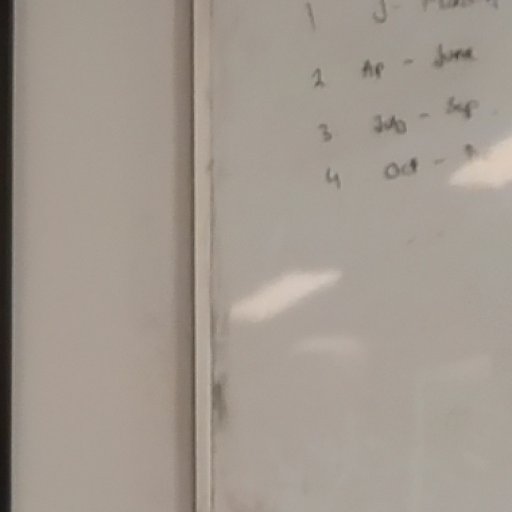 1 J -
2 Ap - June
3 July - Sep
4 Oct -